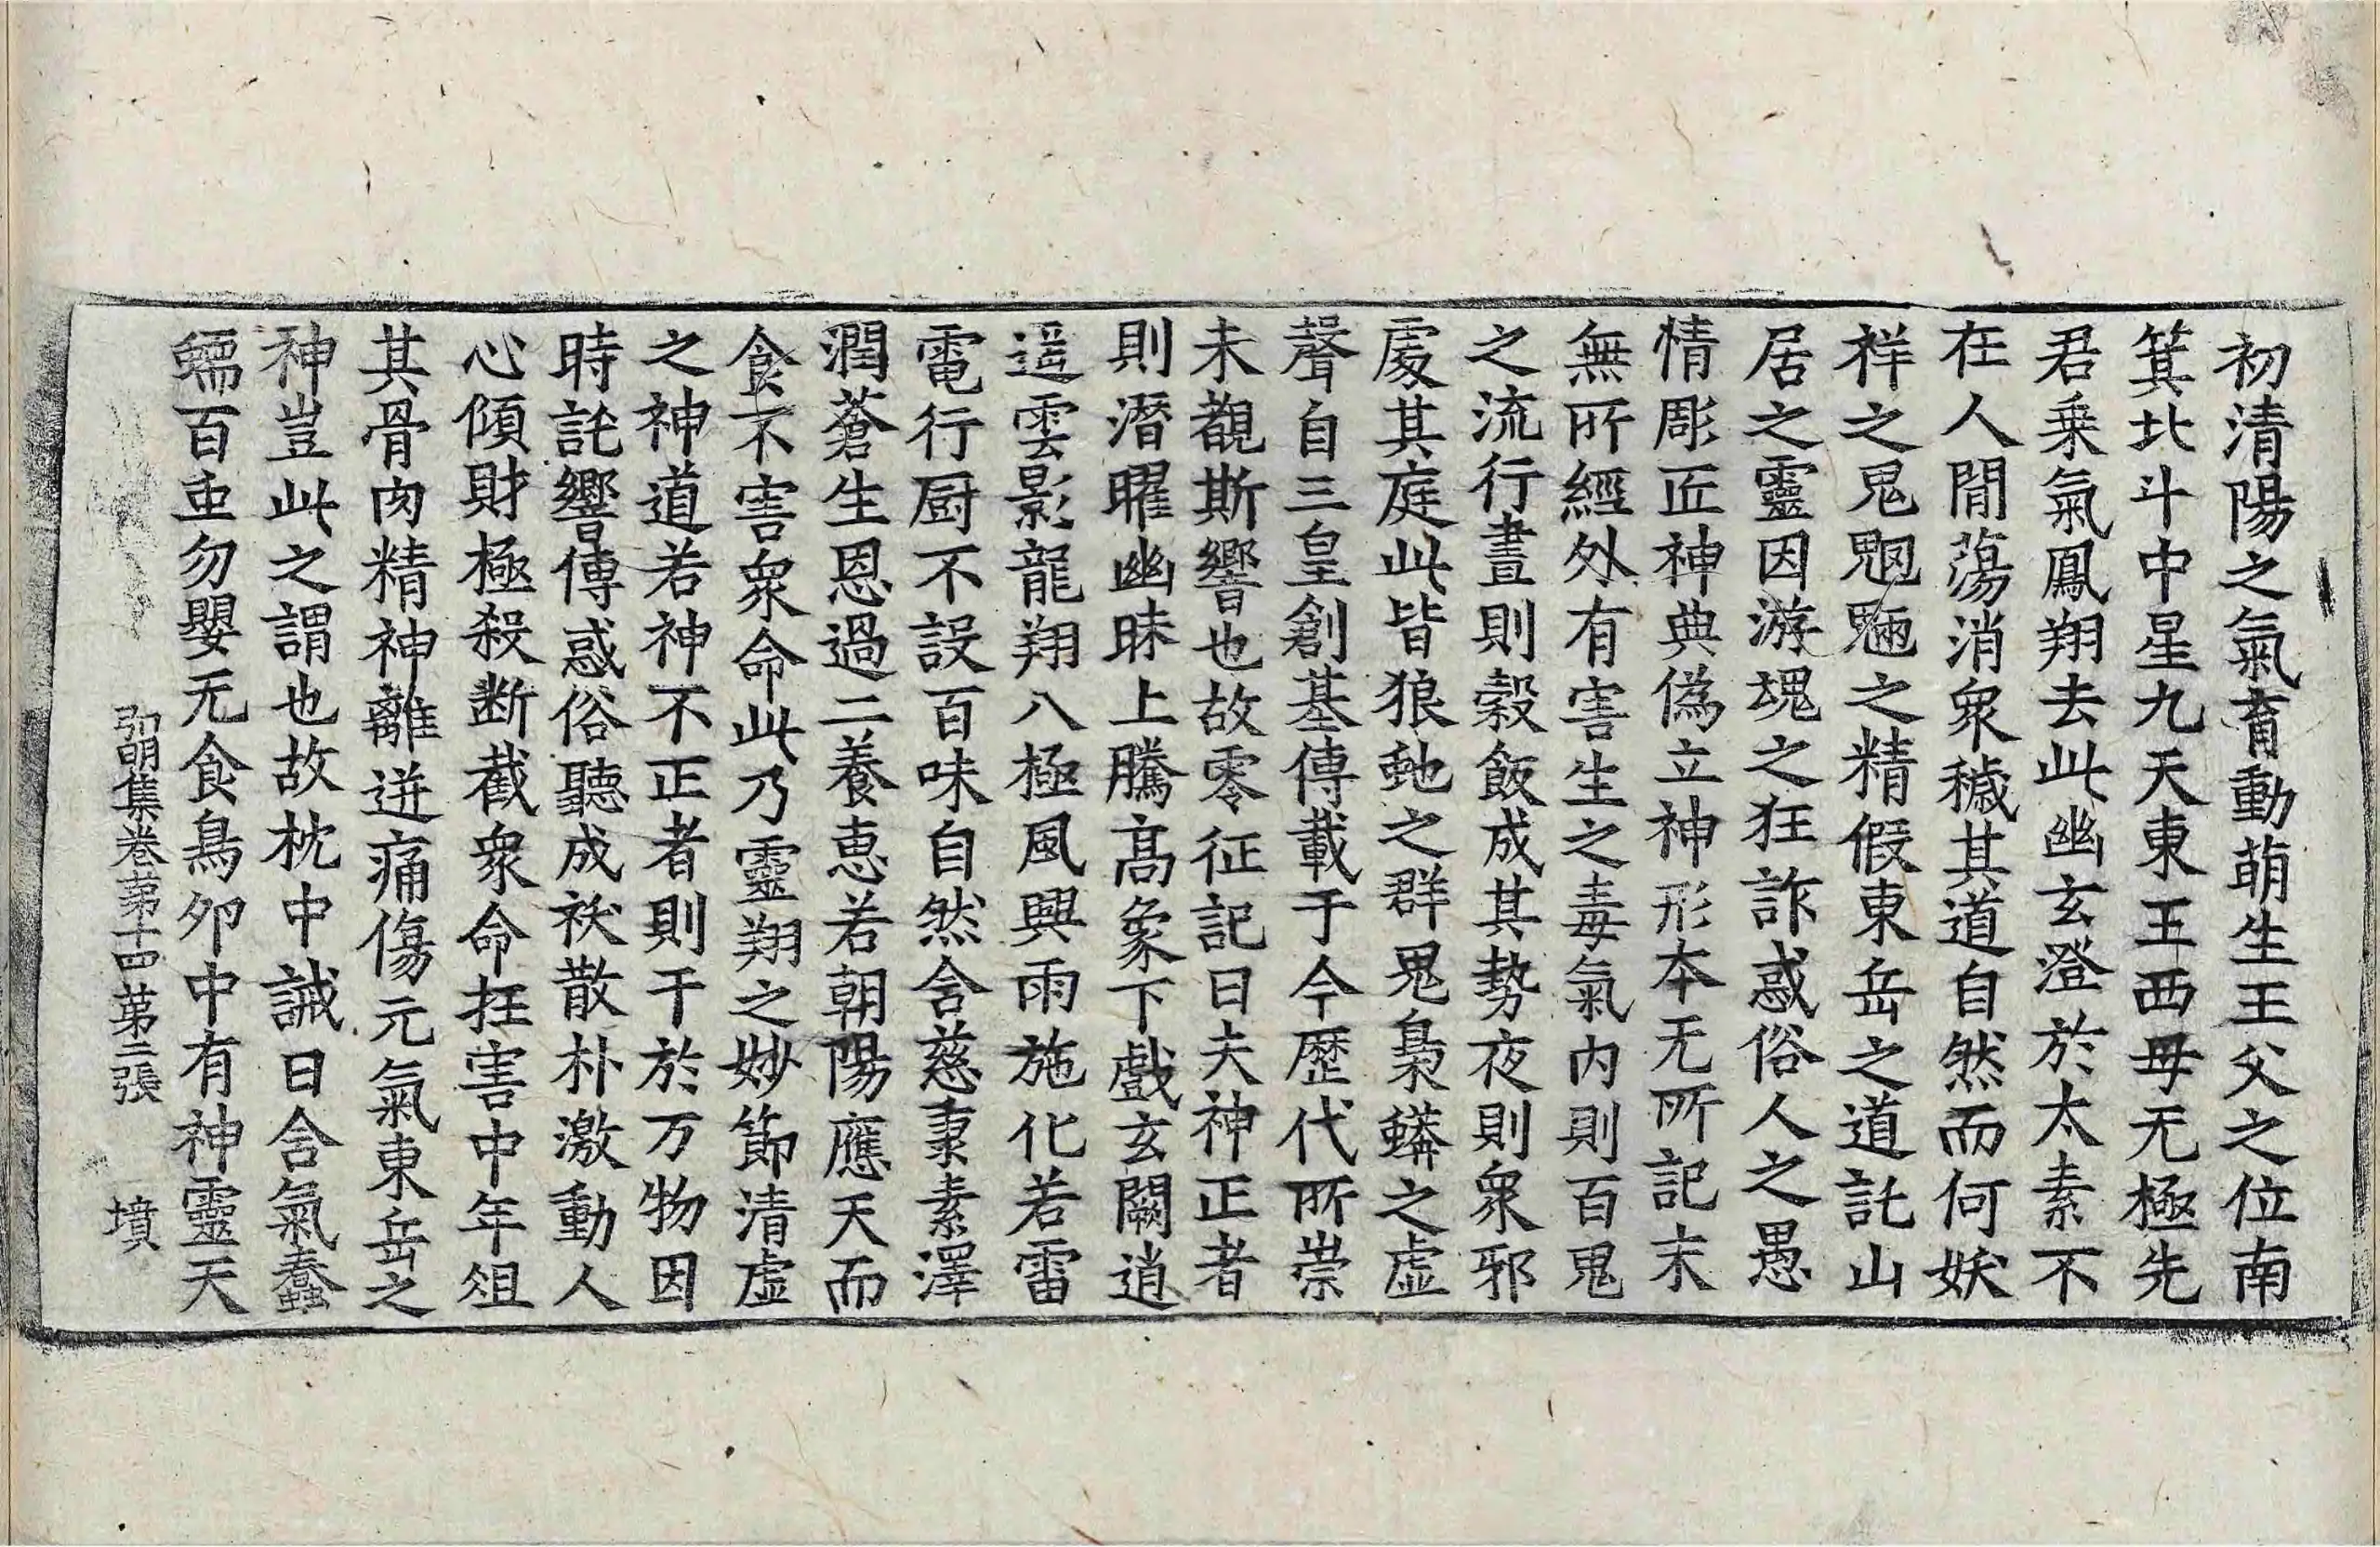 初清陽之氣育動萌生王父之位南
箕北斗中星九天東王西母无極先
君乗氣鳳翔去此幽玄澄於太素不
在人間蕩消衆穢其道自然而何妖
祥之鬼魍魎之精假東岳之道託山
居之靈因游塊之狂詐惑俗人之愚
情彫匠神典偽立神形本无所記末
無所經外有害生之毒氣内則百鬼
之流行晝則穀飯成其勢夜則衆邪
處其庭此皆狼虵之群鬼梟蟒之虚
聲自三皇創基傳載于今歷代所崇
未覩斯響也故零征記曰夫神正者
則潛曜幽昧上騰髙象下戲玄闕逍
遥雲影龍翔八極風興雨施化若雷
電行厨不設百味自然含慈秉素澤
潤蒼生恩過二養恵若朝陽應天而
食不害衆命此乃靈翔之妙節清虚
之神道若神不正者則干於万物因
時託響傳惑俗聽成祅散朴激動人
心傾財極殺断截衆命抂害中年俎
其骨肉精神離迸痛傷元氣東岳之
神豈此之謂也故枕中誡曰含氣蠢
蠕百虫勿嬰无食鳥卵中有神靈天
弘明集卷苐十四苐二張 墳